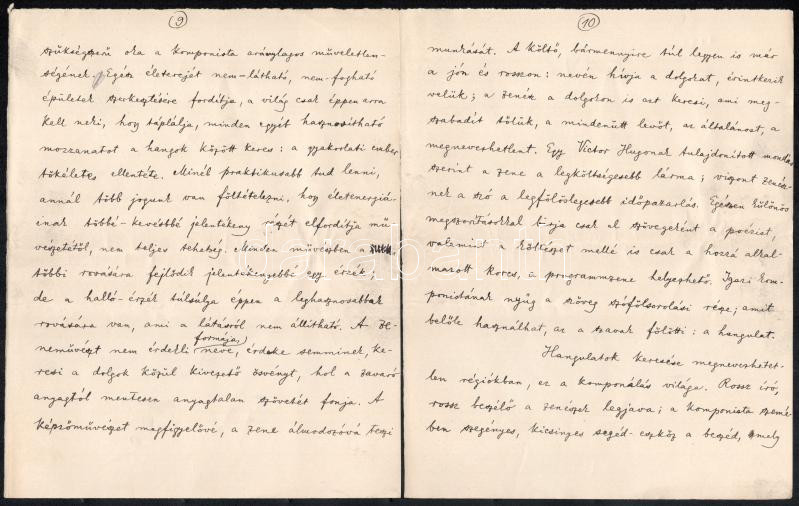 9
szükségszerű oka a komponista aránylagos műveletlen-
ségének. Egész életerejét nem-látható, nem-fogható
épületek szerkesztésére fordítja, a világ csak éppen arra
kell neki, hogy táplálja, minden egyéb hasznosítható
mozzanatot a hangok között keres: a gyakorlati ember
tökéletes ellentéte. Minél praktikusabb tud lenni,
annál több jogunk van föltételezni, hogy életenergiá-
inak többé-kevésbbé jelentékeny részét elfordítja mű-
vészetétől, nem teljes tehetség. Minden művészben a
többi rovására fejlődik jelentékenyebbé egy érzék,
de a halló-érzék túlsúlya éppen a leghasznosabbak
rovására van, ami a látásról nem állítható. A ze-
neművészt nem érdekli formája, neve, érdeke semminek, ke-
resi a dolgok közül kivezető ösvényt, hol a zavaró
anyagtól mentesen anyagtalan szövetét fonja. A
képzőművészet magfigyelővé, a zene álmodozóvá teszi
10
munkását. A költő, bármennyire túl legyen is már
a jón és rosszon: nevén hívja a dolgokat, érintkezik
velük; a zenész a dolgokon is azt keresi, ami meg-
szabadít tőlük, a mindenütt levőt, az általánost, a
megnevezhetlent. Egy Victor Hugonak tulajdonított mondás
szerint a zene a legköltségesebb lárma; viszont zenész-
nek a szó a legfölöslegesebb időpazarlás. Egészen különös
megszorításokkal bírja csak el szövegeként a poézist,
valamint a költészet mellé is csak a hozzá alkal-
mazott korcs, a programmzene helyezhető. Igazi kom-
ponistának nyűg a szöveg szófölsorolási része; amit
belőle használhat, az a szavak fölötti: a hangulat.
Hangulatok keresése megnevezhetet-
len régiókban, ez a komponálás világa. Rossz író,
rossz beszélő a zenészek legjava; a komponista szemé-
ben szegényes, kicsinyes segéd-eszköz a beszéd, mely